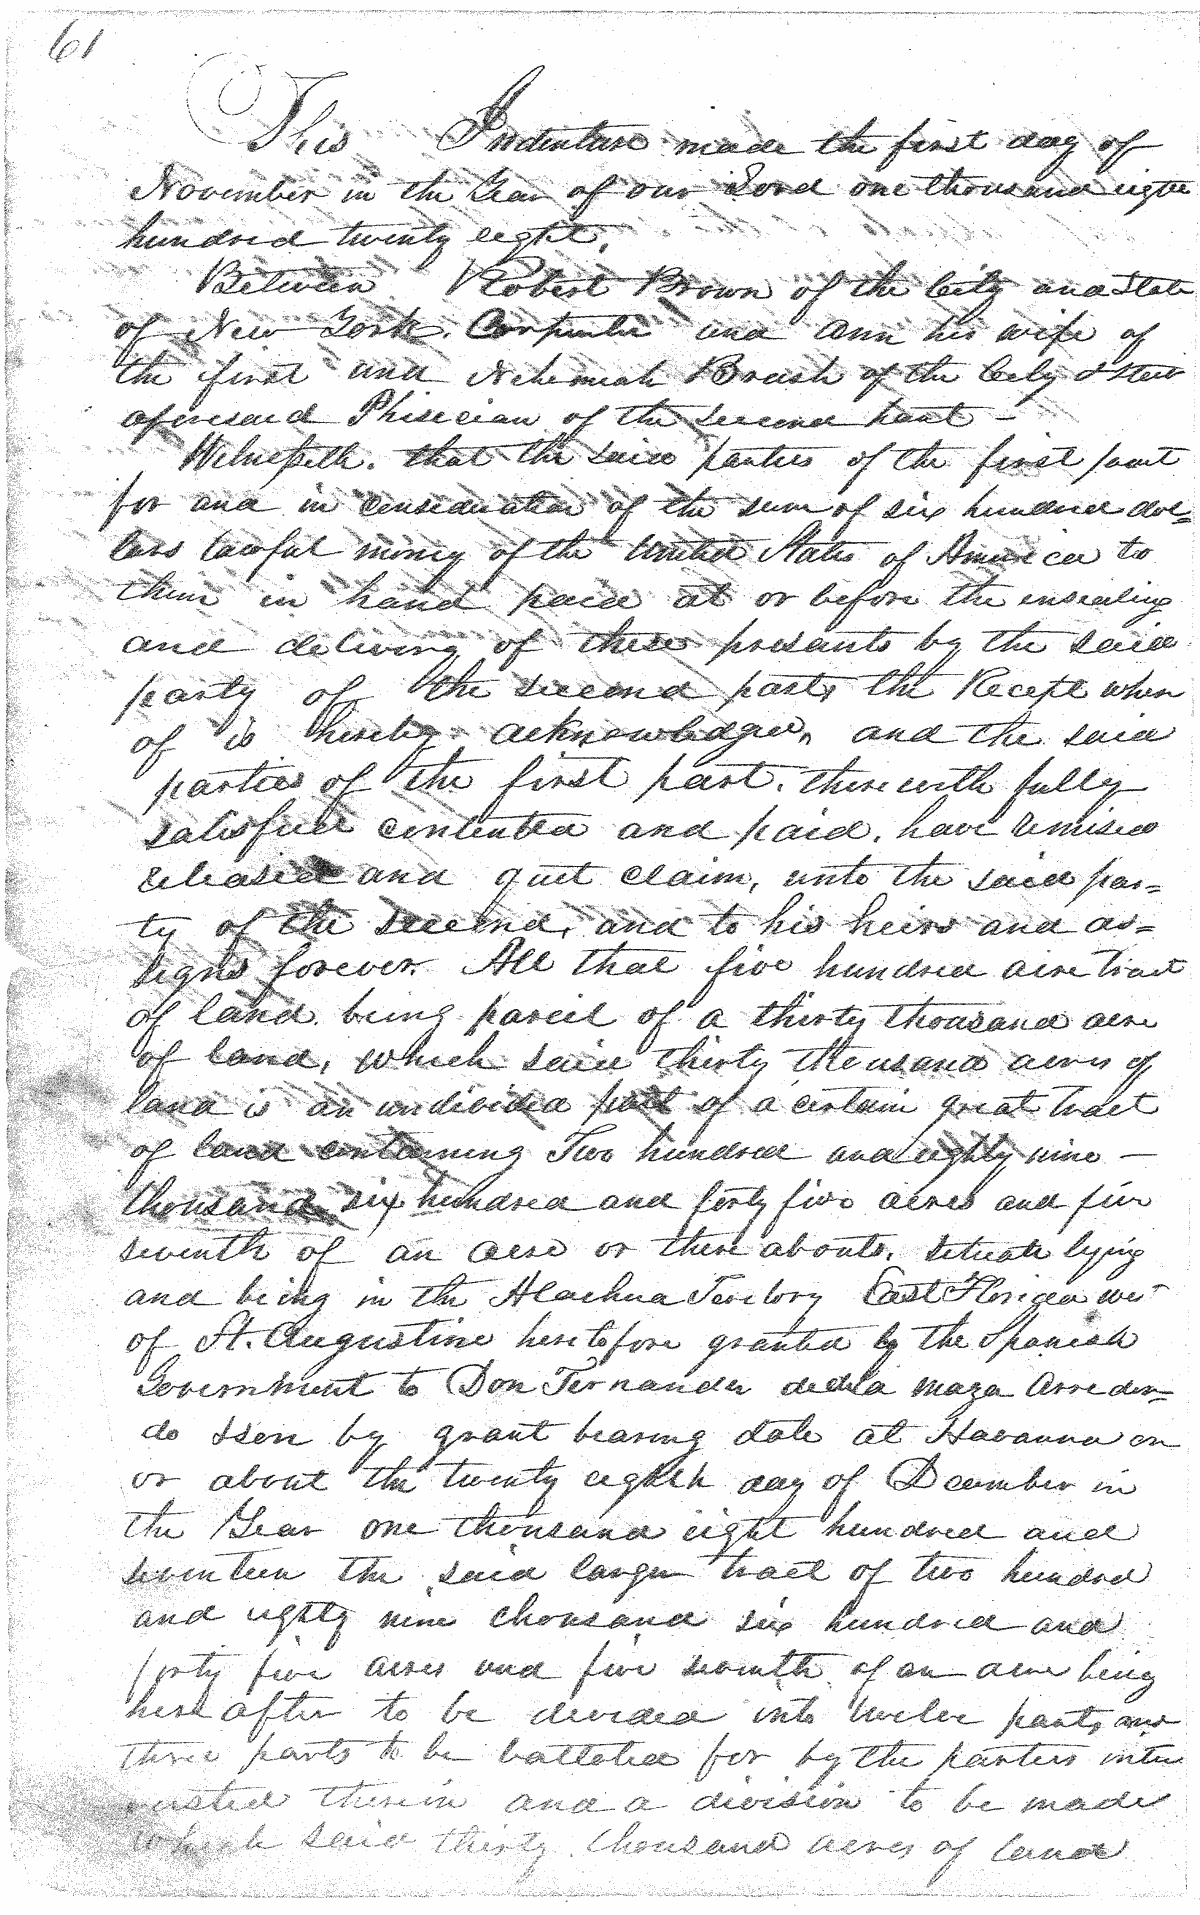 61
This Indenture made the first day of
November in the Year of our Lord one thousand eight
hundred twenty eight,
Between Robert Brown of the City and State
of New York. Carpenter and Ann his wife of
the first and Nehemiah Brush of the City & State
aforesaid Phisician of the second part —
Witnesseth. that the said parties of the first part
for and in consideration of the sum of six hundred dol=
lars lawful money of the United States of America to
them in hand paid at or before the ensealing
and delivery of these presants by the said
party of the second part, the Recept when
of is hereby acknowledged, and the said
parties of the first part. therewith fully
satisfied contented and paid. have remised
released and quit claim, unto the said par=
ty of the second, and to his heirs and as=
signs forever. All that five hundred acre tract
of land. being parcel of a thirty thousand acre
of land, which said thirty thousand acres of
land is an undivided part of a certain great tract
of land containing Two hundred and eighty nine —
thousand six hundred and forty five acres and five
seventh of an acre or there abouts. situate lying
and being in the Alachua Teritory East Florida west
of St. Augustine heretofore granted by the Spanish
Government to Don Fernander dedela maza Arredon=
do by grant bearing date at Havanna on
or about the twenty eighth day of December in
the Year one thousand eight hundred and
seventeen the said larger tract of two hundred
and eighty nine thousand six hundred and
forty five acres and five seventh of an acre being
here after to be devided into twelve parts and
three parts to be ballotted for by the parties inter
rested therein and a division to be made
which said thirty thousand acres of land